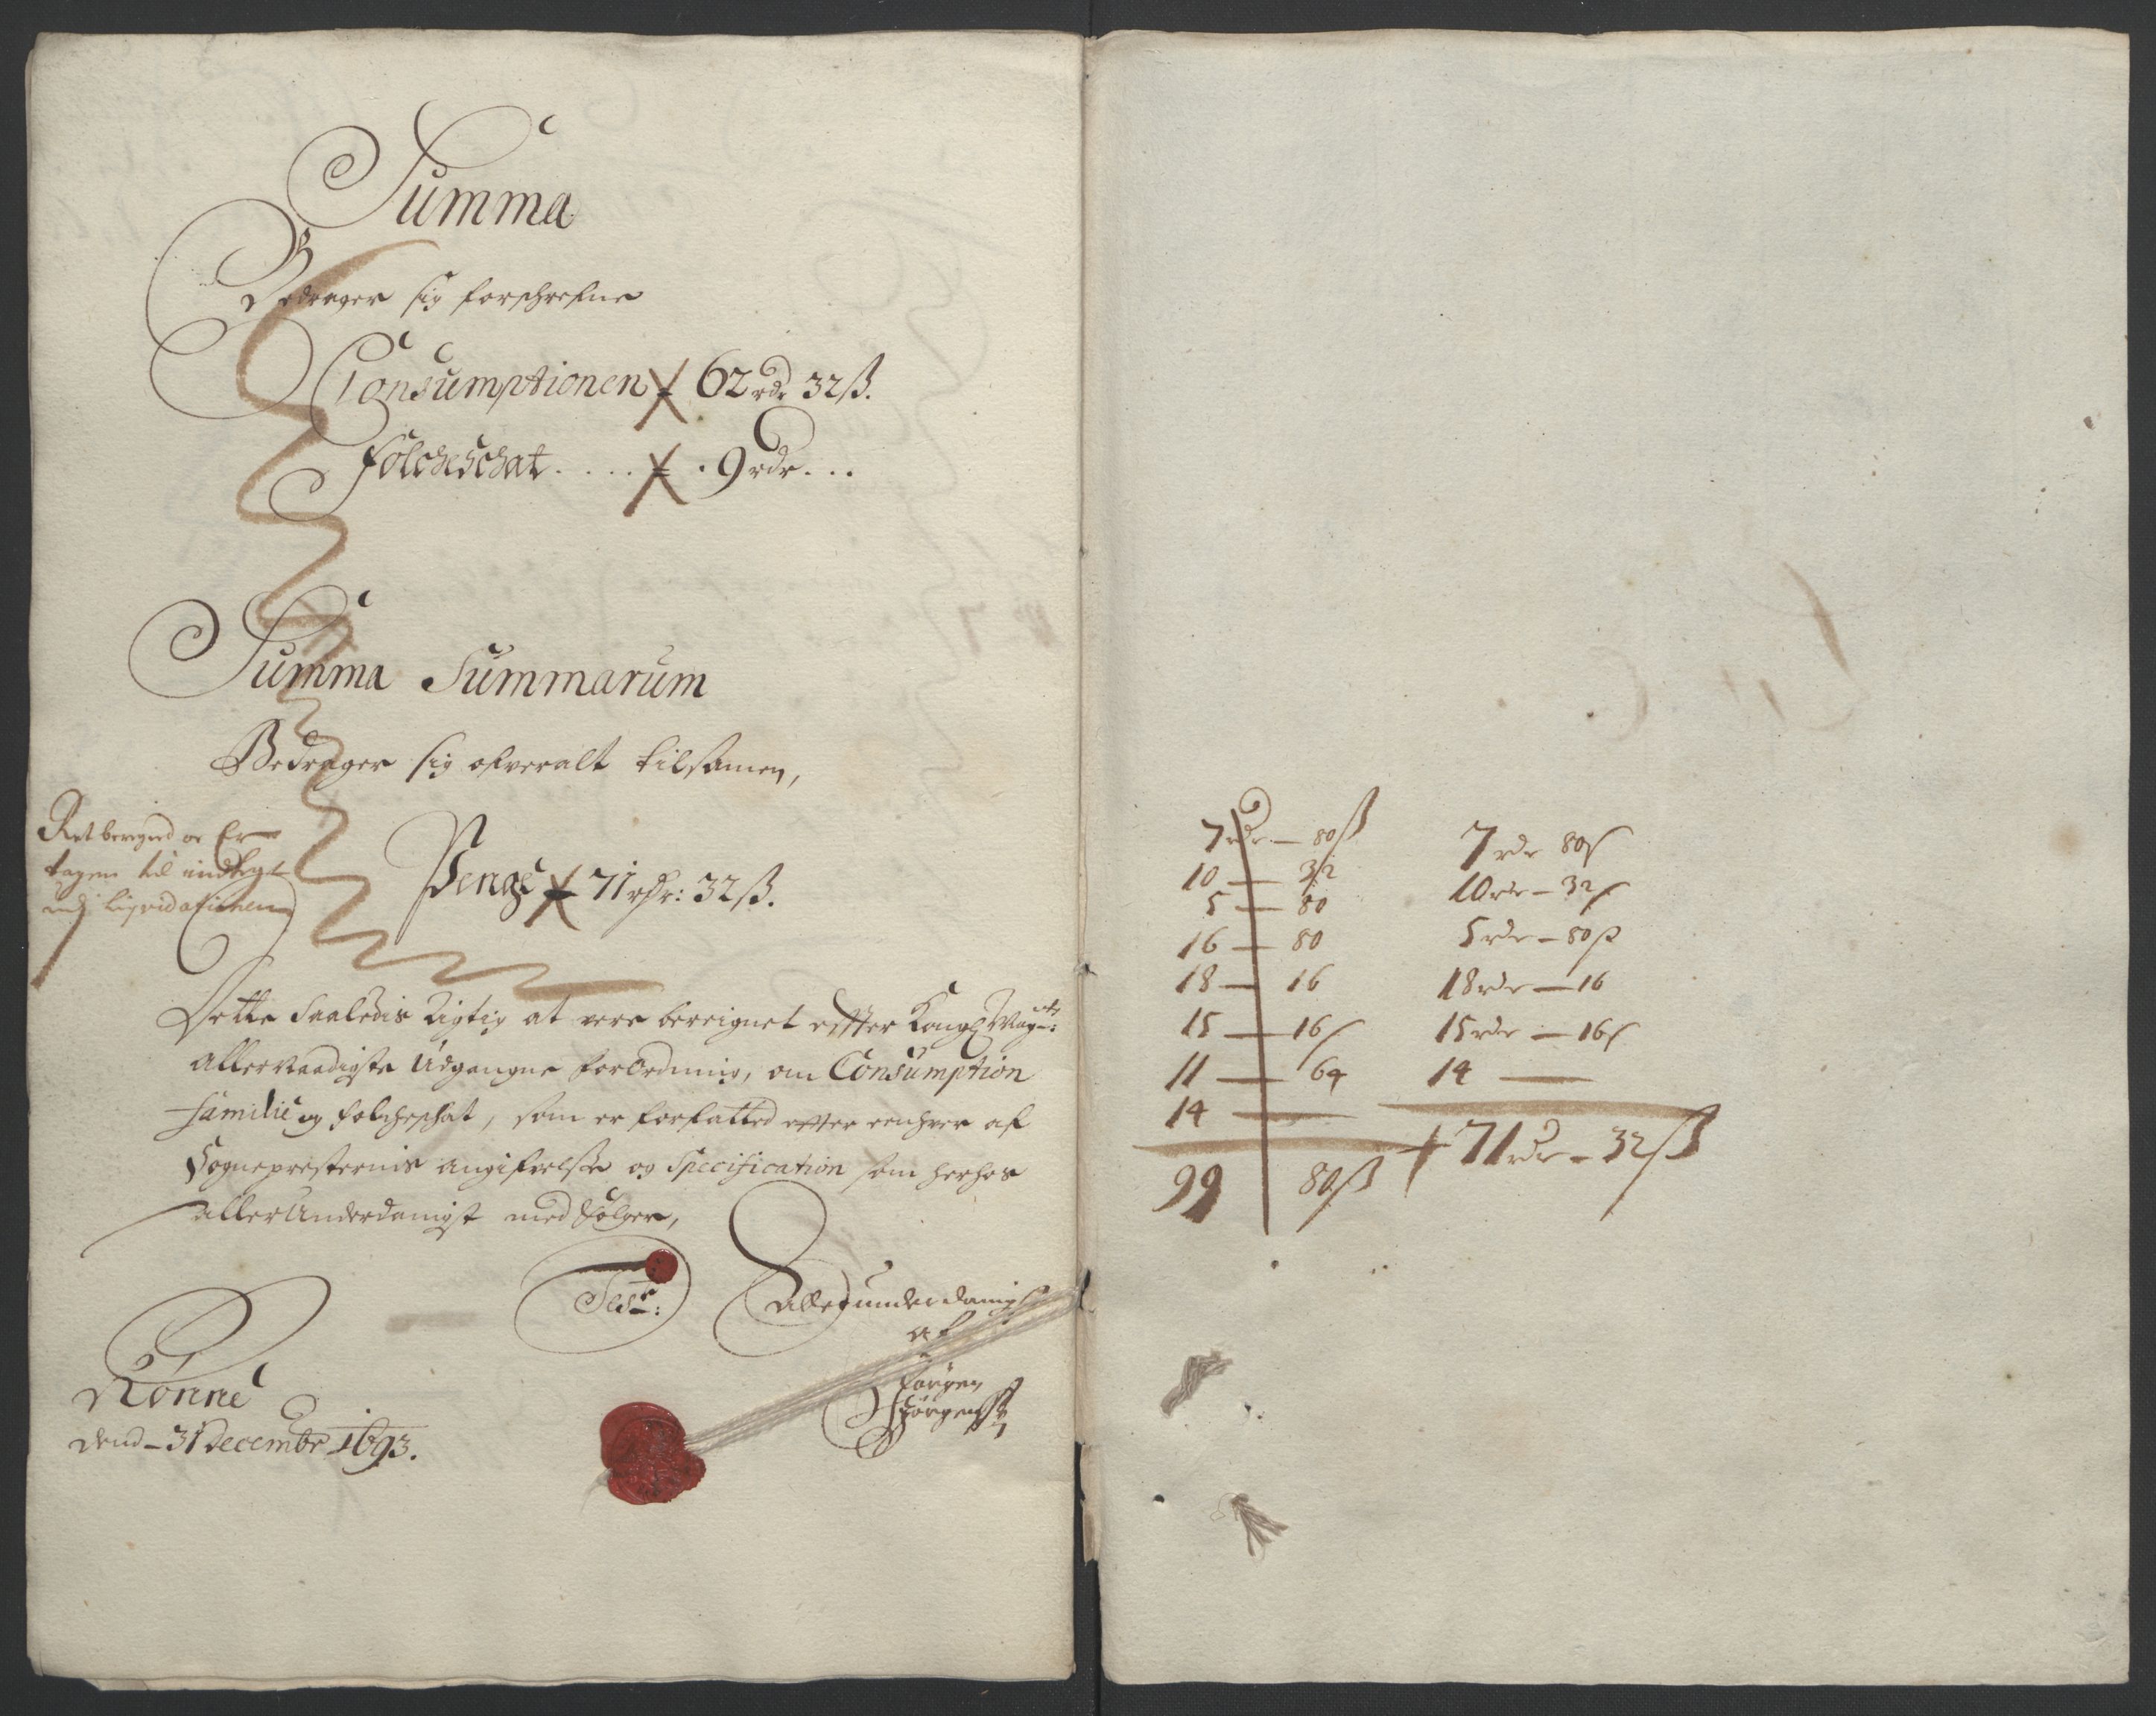 Summa
Bedrager sig forschrefne
Consumptionen 62 rdr 32 ß.
Folcheschat . . . . . 9 rdr . . .
Summa Summarum
Bedrager sig ofveralt tilsamen,
Ret beregned oc Er
tagen til indtegt
udj liqvidationen
Penge 71 rdr: 32 ß.
Dette saaledis rigtig at vere bereignet effter Kongl Mayts:
allernaadigste Udgangne forordning, om Consumption
familie og folcheschat, som er forfatted effter enhver af
Sognepresternis angifvelse og Specification som herhos
allerunderdanigst med følger,
Allerunderdanigst
af
Jørgen
Jørgenss
Rønne
dend 31 Decembr 1693.
7 rdr — 80 ß
10 — 32
5 — 80
16 — 80
18 — 16
15 — 16 ß
11 — 64
14 —
99 80 ß
7 rdr 80 ß
10 rdr — 32 ß
5 rdr — 80 ß
18 rdr — 16
15 rdr — 16 ß
14 —
71 rdr — 32 ß